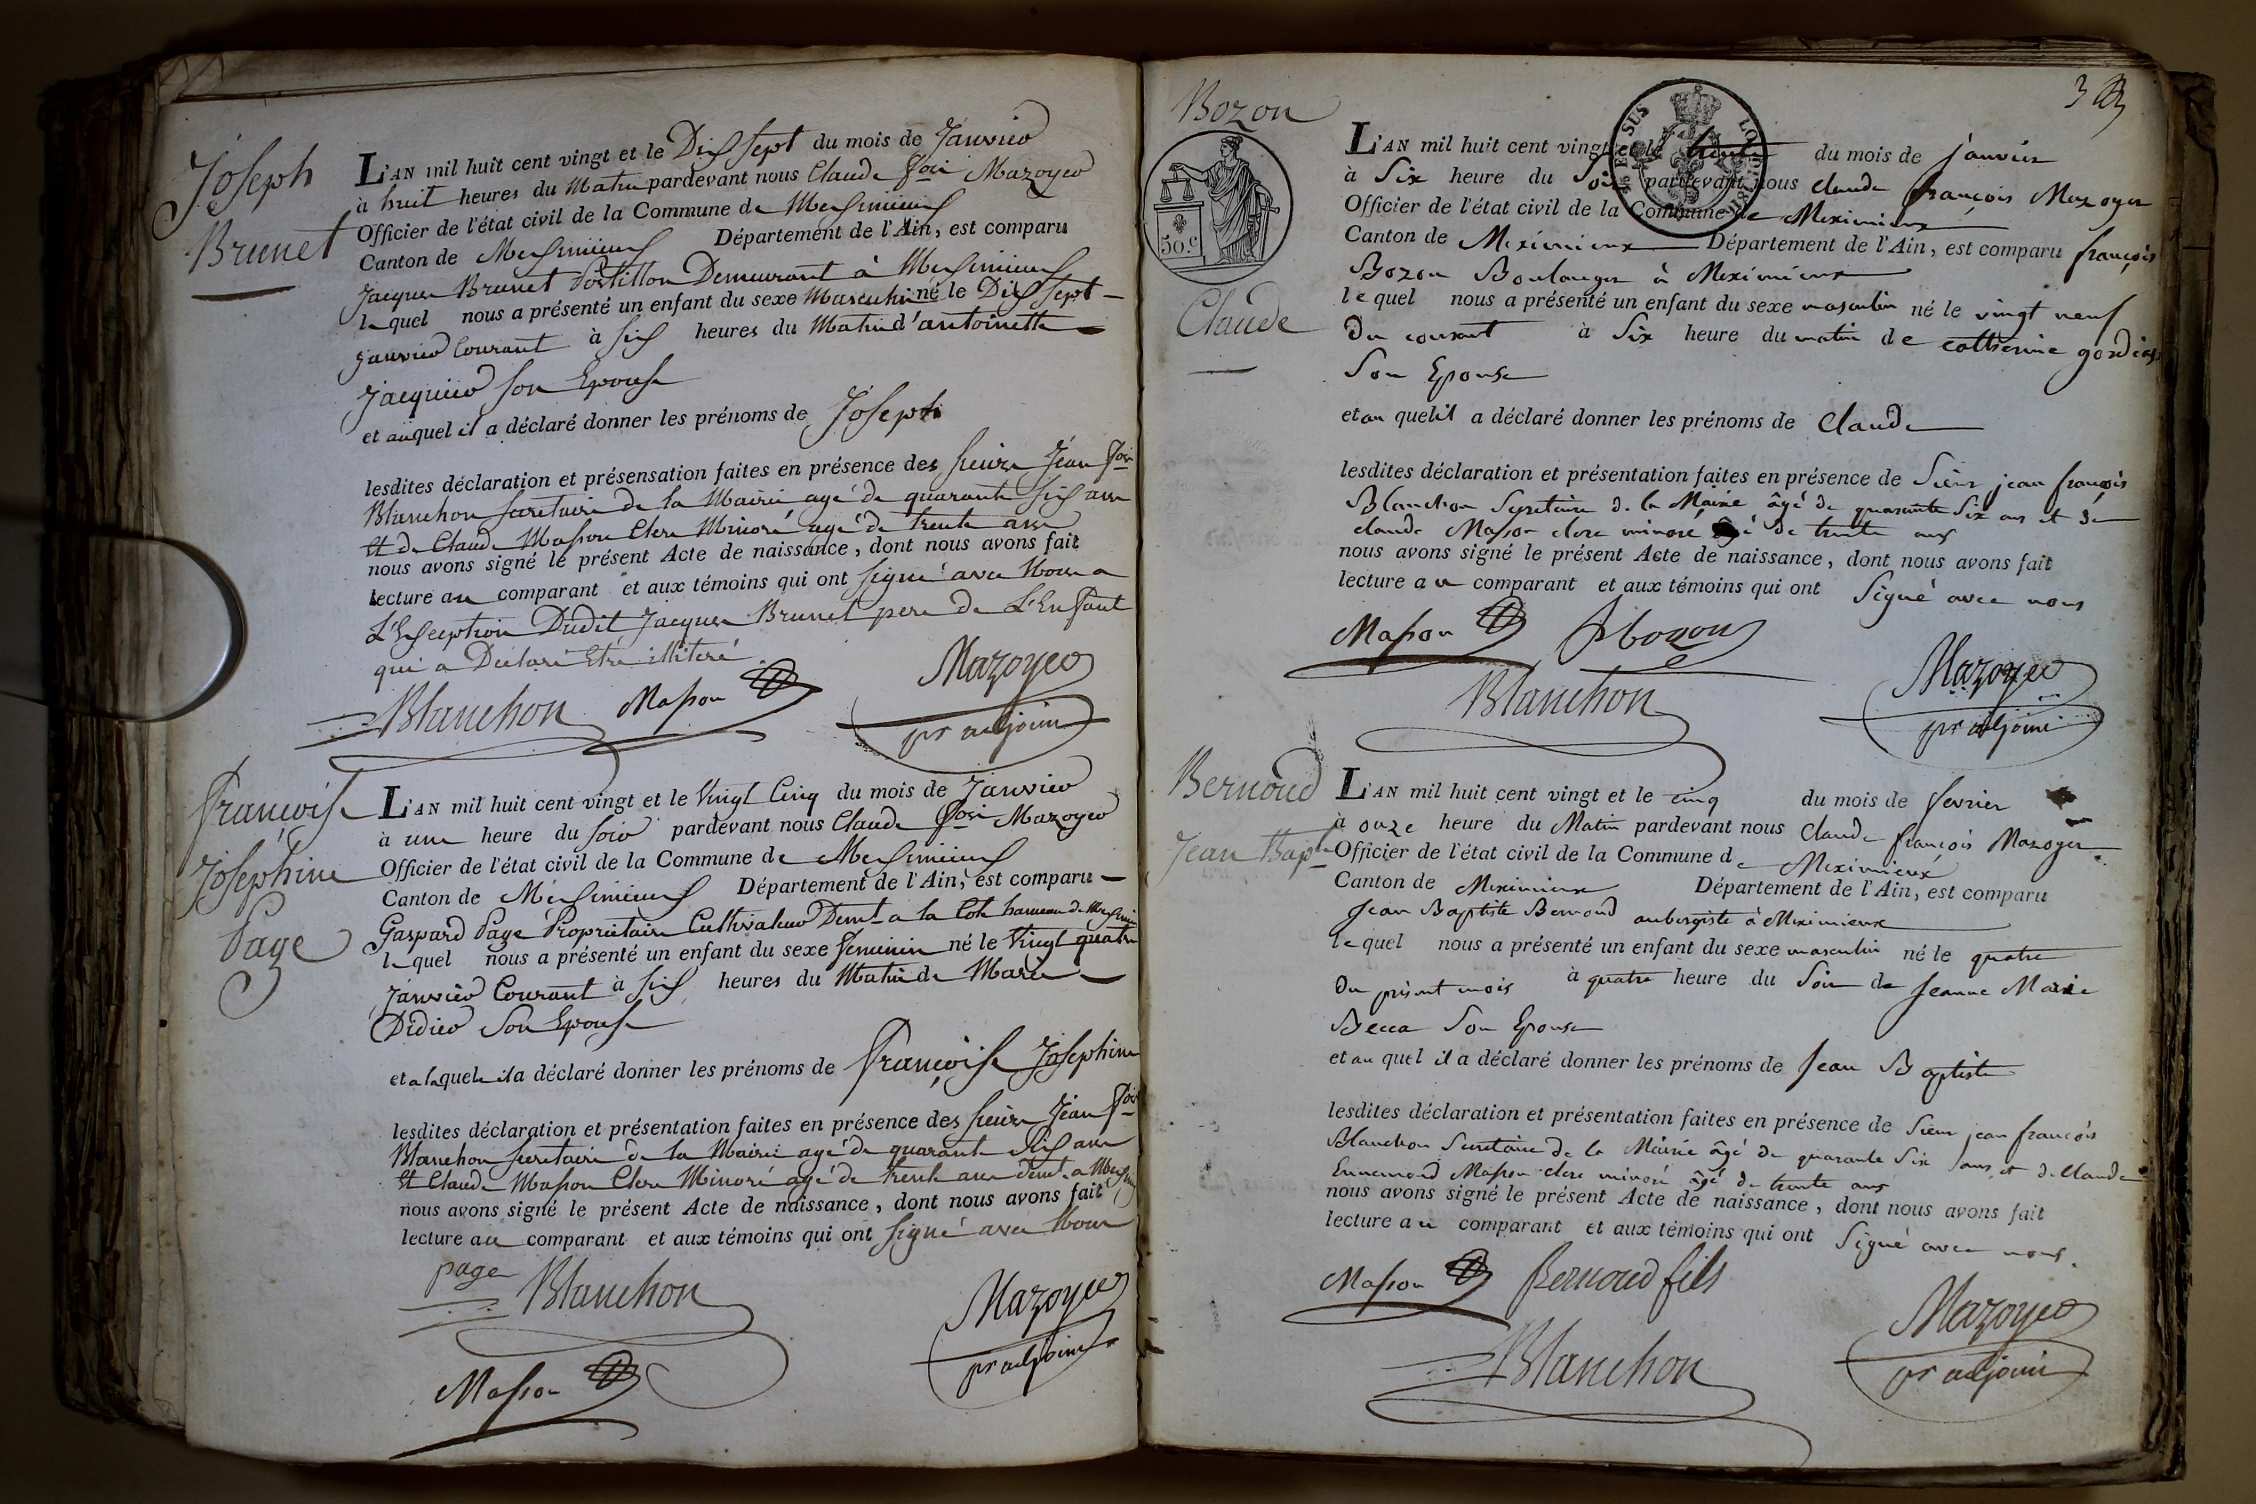 Joseph
Brunet
L'AN mil huit cent vingt et le Dix Sept du mois de Janvier
à huit heures du Matin pardevant nous Claude fois Mazoyer
Officier de l'état civil de la Commune de Meximieux
Canton de Meximieux Département de l'Ain, est comparu
Jacques Brunet Postillon Demeurant à Meximieux
lequel nous a présenté un enfant du sexe Masculin né le Dix Sept
janvier Courant à Six heures du Matin d'antoinette
Jacquier son Epouse
et auquel il a déclaré donner les prénoms de Joseph
lesdites déclaration et présensation faites en présence des sieurs Jean fois
Blanchon Secretaire de la Mairie agé de quarante six ans
et de Claude Masson Clerc Minoré agé de trente ans
nous avons signé le présent Acte de naissance, dont nous avons fait
lecture au comparant et aux témoins qui ont signé avec Nous a
L'Exception Dudit Jacques Brunet pere de L'Enfant
qui a Déclaré Etre illiteré
Blanchon Masson Mazoyer
pr adjoint
Françoise
Josephine
Page
L'AN mil huit cent vingt et le Vingt Cinq du mois de Janvier
à une heure du soir pardevant nous Claude fois Mazoyer
Officier de l'état civil de la Commune de Meximieux
Canton de Meximieux Département de l'Ain, est comparu
Gaspard Page Propriétaire Cultivateur Demt a la Cote hameau de Meximieux
lequel nous a présenté un enfant du sexe feminin né le Vingt quatre
janvier Courant à Six heures du Matin de Marie
Didier Son Epouse
et a laquele il a déclaré donner les prénoms de Françoise Josephine
lesdites déclaration et présentation faites en présence des sieurs Jean fois
Blanchon secretaire de la Mairie agé de quarante Six ans
et Claude Masson Clerc Minoré agé de trente ans demt a Mexim
nous avons signé le présent Acte de naissance, dont nous avons fait
lecture au comparant et aux témoins qui ont signé avec Nous
page Blanchon Mazoyer
pr adjoint
Masson
3
Bozon
50 c
Claude
L'AN mil huit cent vingt et le trente du mois de janvier
à Six heure du Soir pardevant nous claude françois Mazoyer
Officier de l'état civil de la Commune de Meximieux
Canton de Meximieux Département de l'Ain, est comparu françois
Bozon Boulanger à Meximieux
lequel nous a présenté un enfant du sexe masculin né le vingt neuf
Du courant à Six heure du matin de catherine
Son Epouse
et au quel il a déclaré donner les prénoms de Claude
lesdites déclaration et présentation faites en présence de Sieur jean françois
Blanchon Secretaire de la Mairie âgé de quarante Six ans et de
claude Masson clerc minoré âgé de trente ans
nous avons signé le présent Acte de naissance, dont nous avons fait
lecture au comparant et aux témoins qui ont Signé avec nous
Masson f bozon
Blanchon Mazoyer
pr adjoint
Bernoud
Jean Bapte
L'AN mil huit cent vingt et le cinq du mois de fevrier
à onze heure du Matin pardevant nous Claude françois Mazoyer
Officier de l'état civil de la Commune de Meximieux
Canton de Meximieux Département de l'Ain, est comparu
Jean Baptiste Bernoud aubergiste à Meximieux
lequel nous a présenté un enfant du sexe masculin né le quatre
Du présent mois à quatre heure du Soir de Jeanne Marie
Becca Son Epouse
et au quel il a déclaré donner les prénoms de Jean Baptiste
lesdites déclaration et présentation faites en présence de Sieur jean françois
Blanchon Secretaire de la Mairie âgé de quarante Six ans et de Claude
Ennemond Masson clerc minoré âgé de trente ans
nous avons signé le présent Acte de naissance, dont nous avons fait
lecture au comparant et aux témoins qui ont Signé avec nous.
Masson Bernoud fils
Blanchon Mazoyer
pr adjoint